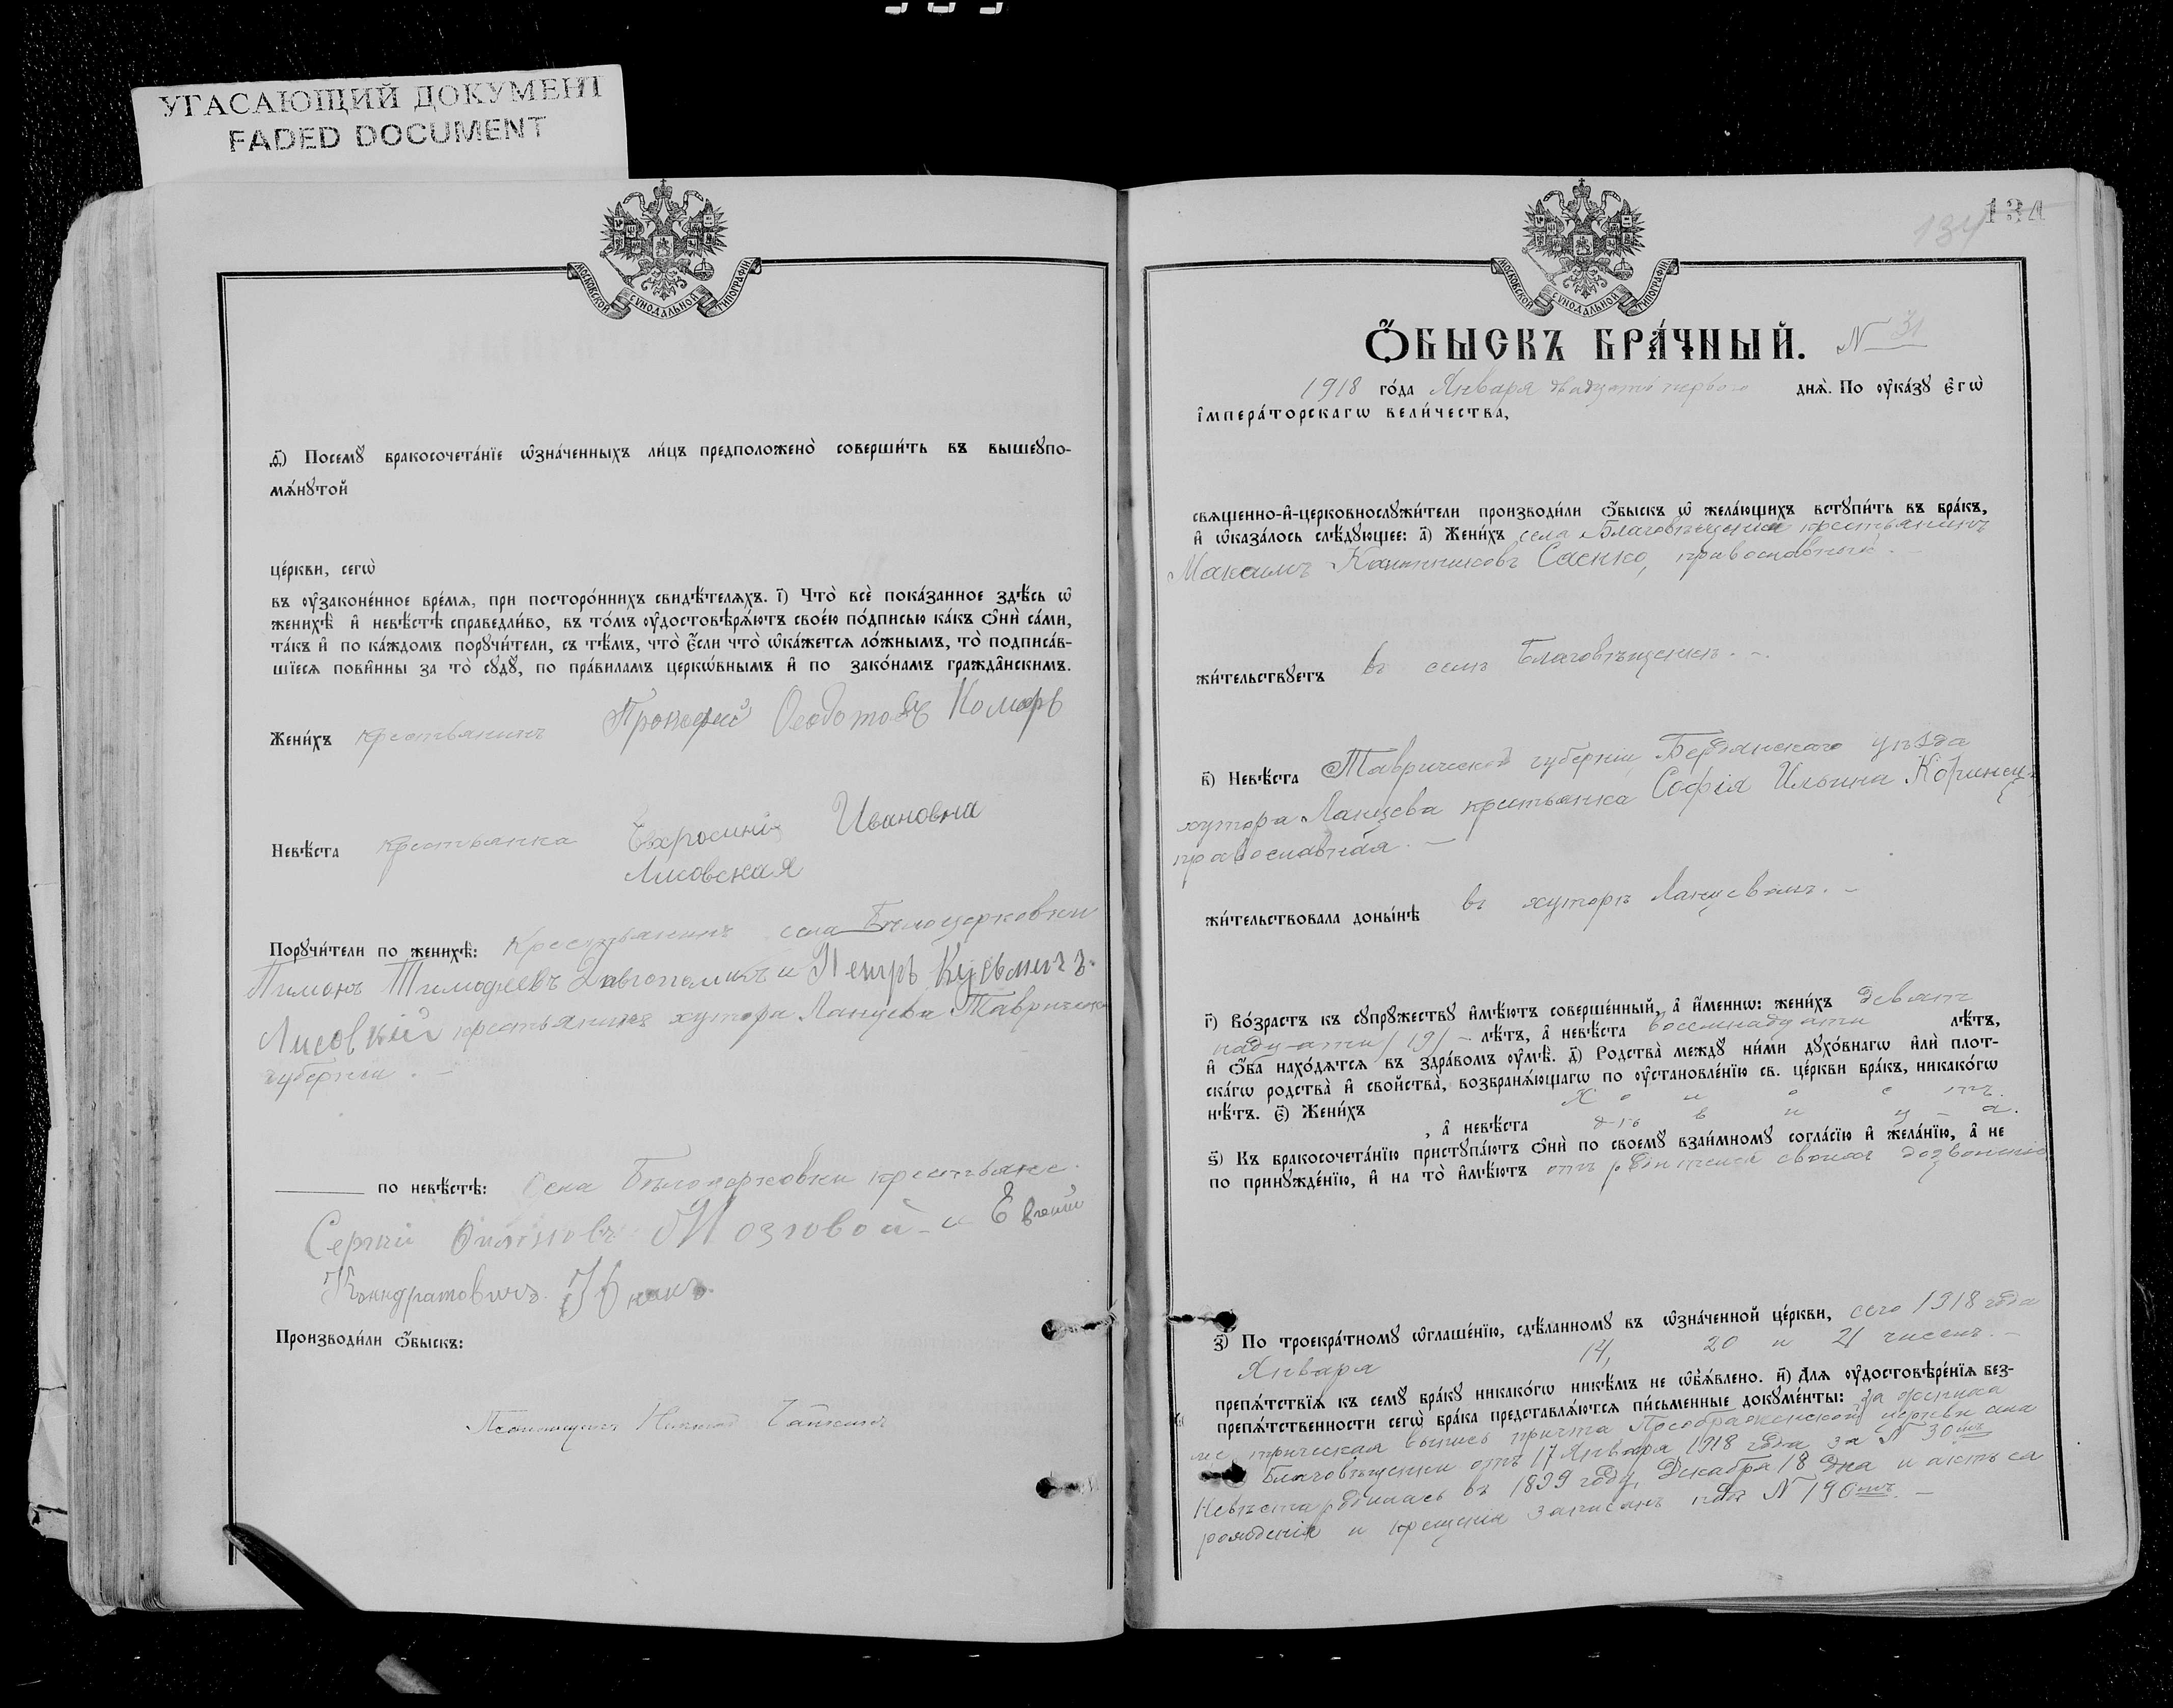 УГАСАЮЩИЙ ДОКУМЕНТ
FADED DOCUMENT
МОСКОВСКОЙ СУНОДАЛЬНОЙ ТИПОГРАФІИ
ѳ҃) Посемꙋ̀ бракосочета́нїе ѡ҆зна́ченныхъ ли́цъ предположено̀ соверши́ть въ вышеꙋпо-
мѧ́нꙋтой
це́ркви, сегѡ̀
въ ᲂу҆зако́ненное вре́мѧ, при посторо́ннихъ свидѣ́телѧхъ. і҃) Что̀ всѐ пока́занное здѣ́сь ѡ҆
женихѣ̀ и҆ невѣ́стѣ справедли́во, въ то́мъ ᲂу҆достовѣрѧ́ютъ свое́ю по́дписью ка́къ ѻ҆нѝ са́ми,
та́къ и҆ по ка́ждомъ порꙋчи́тели, съ тѣ́мъ, что̀ є҆́сли что̀ ѡ҆ка́жетсѧ ло́жнымъ, то̀ подписа́в-
шїесѧ пови́нны за то̀ сꙋдꙋ̀, по пра́виламъ церкѡ́внымъ и҆ по зако́намъ гражда́нскимъ.
Жени́хъ крестьянинъ Прокофій Ѳеодотовъ Комаръ
Невѣ́ста крестьянка Ивановна
Лисовская
Порꙋчи́тели по женихѣ̀: Крестьянинъ села Бѣлоцерковки
Пимонъ Тимофеевъ и Петръ Кузьмичъ
Лисовкій крестьянинъ хутора Ланцева Таврическ
губерніи. –
по невѣ́стѣ: Села Бѣлоцерковки крестьяне
Сергѣй Мозговой и
Кондратовичъ
Производи́ли ѻ҆́быскъ:
Псаломщикъ
134
134
МОСКОВСКОЙ СУНОДАЛЬНОЙ ТИПОГРАФІИ
Ѻ҆́БЫСКЪ БРА́ЧНЫЙ. N 31
1918 го́да Января двадцать перваго днѧ̀. По ᲂу҆ка́зꙋ є҆гѡ̀
і҆мпера́торскагѡ вели́чества,
свѧще́нно-и҆-церковнослꙋжи́тели производи́ли ѻ҆́быскъ ѡ҆ жела́ющихъ встꙋпи́ть въ бра́къ,
и҆ ѡ҆каза́лось слѣ́дꙋющее: а҃) Жени́хъ села Благовѣщенки крестьянинъ
Максимъ Саенко, православный. –
жи́тельствꙋетъ въ селѣ Благовѣщенкѣ. –
в҃) Невѣ́ста Таврической губерніи Бердянскаго уѣзда
хутора Ланцева крестьянка Софія Ильина
православная. –
жи́тельствовала доны́нѣ въ хуторѣ Ланцевомъ. –
г҃) Во́зрастъ къ сꙋпрꙋ́жествꙋ и҆мѣ́ютъ соверше́нный, а҆ и҆́меннѡ: жени́хъ девят
надцати /19/ – лѣ́тъ, а҆ невѣ́ста восемнадцати лѣ́тъ,
и҆ ѻ҆́ба нахо́дѧтсѧ въ здра́вомъ ᲂу҆мѣ̀. д҃) Родства̀ междꙋ̀ ни́ми дꙋхо́внагѡ и҆лѝ плот-
ска́гѡ родства̀ и҆ сво́йства̀, возбранѧ́ющагѡ по ᲂу҆становле́нїю св. це́ркви бра́къ, никако́гѡ
нѣ́тъ. є҃) Жени́хъ Х о л о с тъ.
, а҆ невѣ́ста дѣ в и ц – а.
ѕ҃) Къ бракосочета́нїю пристꙋпа́ютъ ѻ҆нѝ по своемꙋ̀ взаи́мномꙋ согла́сїю и҆ жела́нїю, а҆ не
по принꙋжде́нїю, и҆ на то̀ и҆мѣ́ютъ отъ родителей своихъ дозволеніе
з҃) По троекра́тномꙋ ѡ҆глаше́нїю, сдѣ́ланномꙋ въ ѡ҆зна́ченной це́ркви, сего 1918 года
Января 14, 20 и 21 чиселъ. –
препѧ́тствїѧ къ семꙋ̀ бра́кꙋ никако́гѡ никѣ́мъ не ѡ҆бъѧ́влено. и҃) Длѧ ᲂу҆достовѣре́нїѧ без-
препѧ́тственности сегѡ̀ бра́ка представлѧ́ютсѧ пи́сьменные докꙋме́нты: За жениха
метрическая выпись причта Преображенской церкви села
Благовѣщенки отъ 17 Января 1918 года за N 30мъ
Невѣста родилась въ 1899 году, Декабря 18 дня и актъ ея
рожденія и крещенія записанъ подъ N 190мъ. –